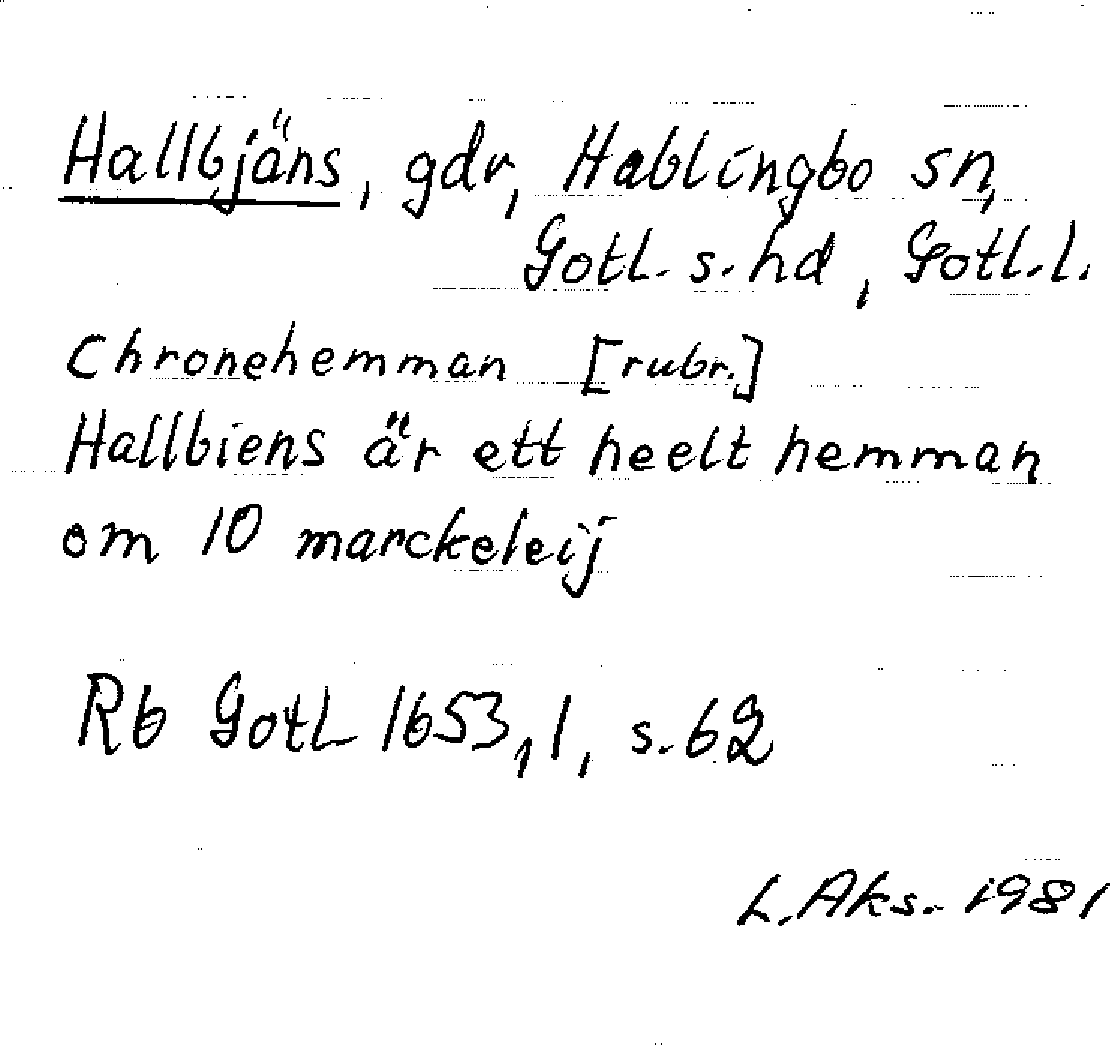 Hallbjäns, gdr, Hablingbo sn,
Gotl. s. hd, Gotl. l.
Chronehemman [rubr.]
Hallbiens är ett heelt hemman
om 10 marckeleij
Rb Gotl 1653,1, s. 62
L. Aks. 1981